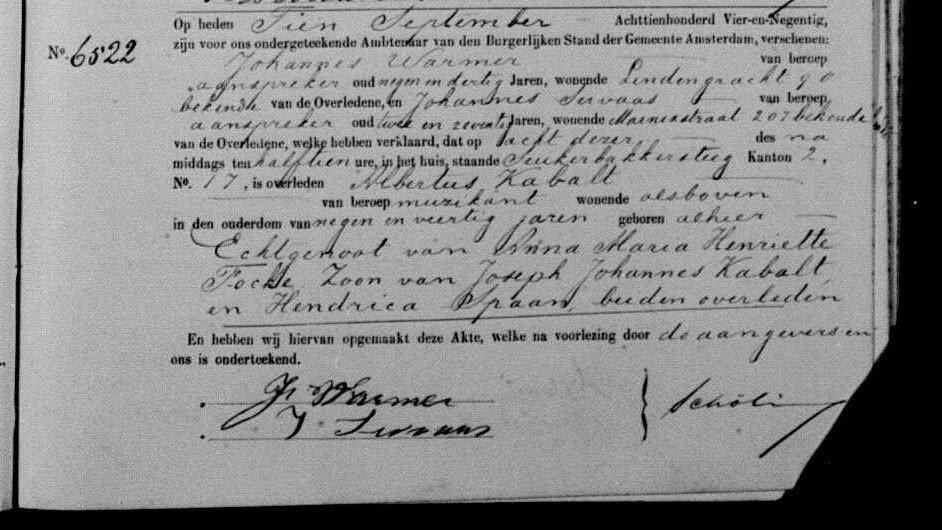 Op heden Tien September Achttienhonderd Vier-en-Negentig,
No. 6522 zijn voor ons ondergeteekende Ambtenaar van den Burgerlijken Stand der Gemeente Amsterdam, verschenen:
Johannes Warmer van beroep
aanspreker oud negen en dertig Jaren, wonende Lindengracht 90
bekende van de Overledene, en Johannes Servaas van beroep,
aanspreker oud twee en zeventig Jaren, wonende Marnixstraat 207 bekende
van de Overledene, welke hebben verklaard, dat op acht dezer des na
middags ten half tien ure, in het huis, staande Suikerbakkersteeg Kanton 2,
No. 17, is overleden Albertus Kabalt
van beroep muzikant wonende alsboven
in den ouderdom van negen en veertig jaren geboren alhier
Echtgenoot van Anna Maria Henriette
Focke Zoon van Joseph Johannes Kabalt
en Hendrica Spaan, beiden overleden
En hebben wij hiervan opgemaakt deze Akte, welke na voorlezing door de aangevers en
ons is onderteekend.
J. Warmer
J Servaas